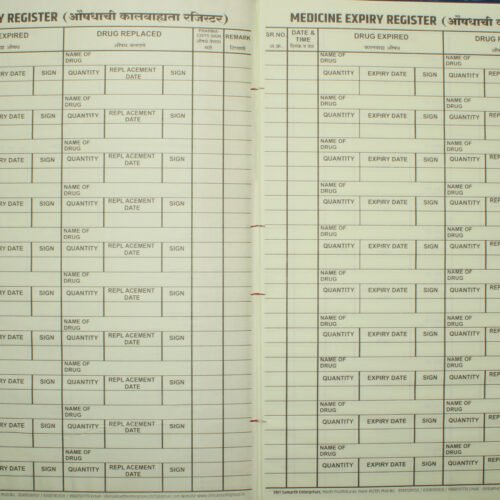 Y REGISTER (औषधाची कालबाह्यता रजिस्टर)
EXPIRED DRUG REPLACED PHARMA- REMARK
औषध
NAME OF
DRUG
RY DATE SIGN QUANTITY REPLACEMENT SIGN
DATE
NAME OF
DRUG
RY DATE SIGN QUANTITY REPLACEMENT SIGN
DATE
NAME OF
DRUG
RY DATE SIGN QUANTITY REPLACEMENT SIGN
DATE
NAME OF
DRUG
RY DATE SIGN QUANTITY REPLACEMENT SIGN
DATE
NAME OF
DRUG
RY DATE SIGN QUANTITY REPLACEMENT SIGN
DATE
NAME OF
DRUG
RY DATE SIGN QUANTITY REPLACEMENT SIGN
DATE
NAME OF
DRUG
RY DATE SIGN QUANTITY REPLACEMENT SIGN
DATE
NAME OF
DRUG
RY DATE SIGN QUANTITY REPLACEMENT SIGN
DATE
NAME OF
DRUG
RY DATE SIGN QUANTITY REPLACEMENT SIGN
DATE
NAME OF
DRUG
RY DATE SIGN QUANTITY REPLACEMENT SIGN
DATE
MEDICINE EXPIRY REGISTER (औषधाची क
SR.NO. DATE & TIME DRUG EXPIRED DRUG R
अ.क्र. कालबाह्य औषध
NAME OF NAME OF
DRUG DRUG
QUANTITY EXPIRY DATE SIGN QUANTITY REP
NAME OF NAME OF
DRUG DRUG
QUANTITY EXPIRY DATE SIGN QUANTITY REP
NAME OF NAME OF
DRUG DRUG
QUANTITY EXPIRY DATE SIGN QUANTITY REP
NAME OF NAME OF
DRUG DRUG
QUANTITY EXPIRY DATE SIGN QUANTITY REP
NAME OF NAME OF
DRUG DRUG
QUANTITY EXPIRY DATE SIGN QUANTITY REP
NAME OF NAME OF
DRUG DRUG
QUANTITY EXPIRY DATE SIGN QUANTITY REP
NAME OF NAME OF
DRUG DRUG
QUANTITY EXPIRY DATE SIGN QUANTITY REP
NAME OF NAME OF
DRUG DRUG
QUANTITY EXPIRY DATE SIGN QUANTITY REP
NAME OF NAME OF
DRUG DRUG
QUANTITY EXPIRY DATE SIGN QUANTITY REP
NAME OF NAME OF
DRUG DRUG
QUANTITY EXPIRY DATE SIGN QUANTITY REP
Shri Samarth Enterprises